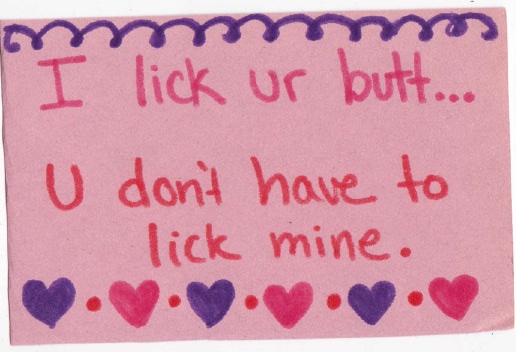 I lick ur butt...
U don't have to
lick mine.